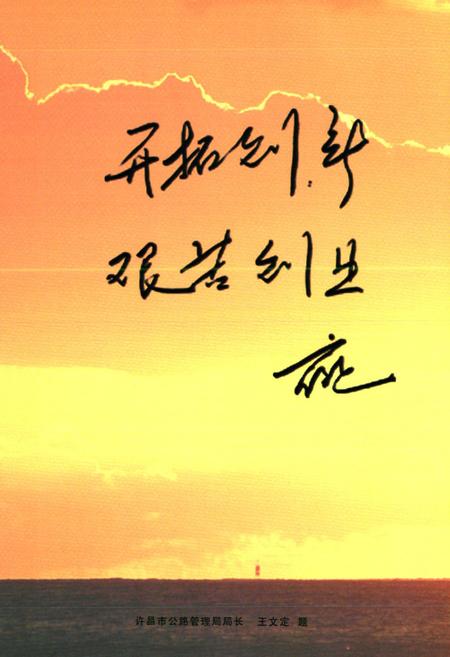 开拓创新
艰苦创业
许昌市公路管理局局长 王文定 题